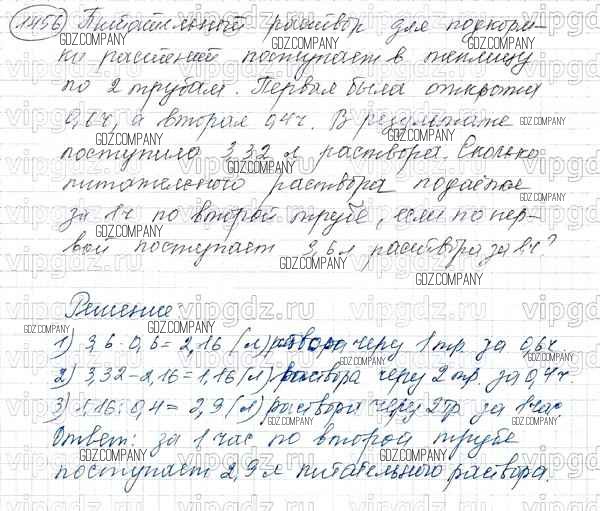 1456 Питательный раствор для подкорм-
ки растений поступает в теплицу
по 2 трубам. Первая была открыта
0,6ч, а вторая 0,4ч. В результате
поступило 3,32 л раствора. Сколько
питательного раствора подаётся
за 1ч по второй трубе, если по пер-
вой поступает 3,6л раствора за 1ч?
Решение
1) 3,6·0,6=2,16 (л) раствора через 1тр. за 0,6ч.
2) 3,32-2,16=1,16 (л) раствора через 2тр. за 0,4ч.
3) 1,16:0,4=2,9 (л) раствора через 2тр за 1час.
Ответ: за 1 час по второй трубе
поступает 2,9 л питательного раствора.
GDZ.COMPANY
vipgdz.ru